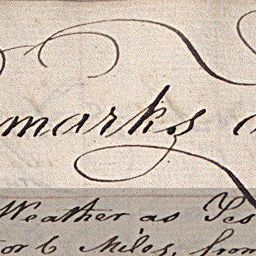 marks
Weather as Yes
or 6 Miles, from